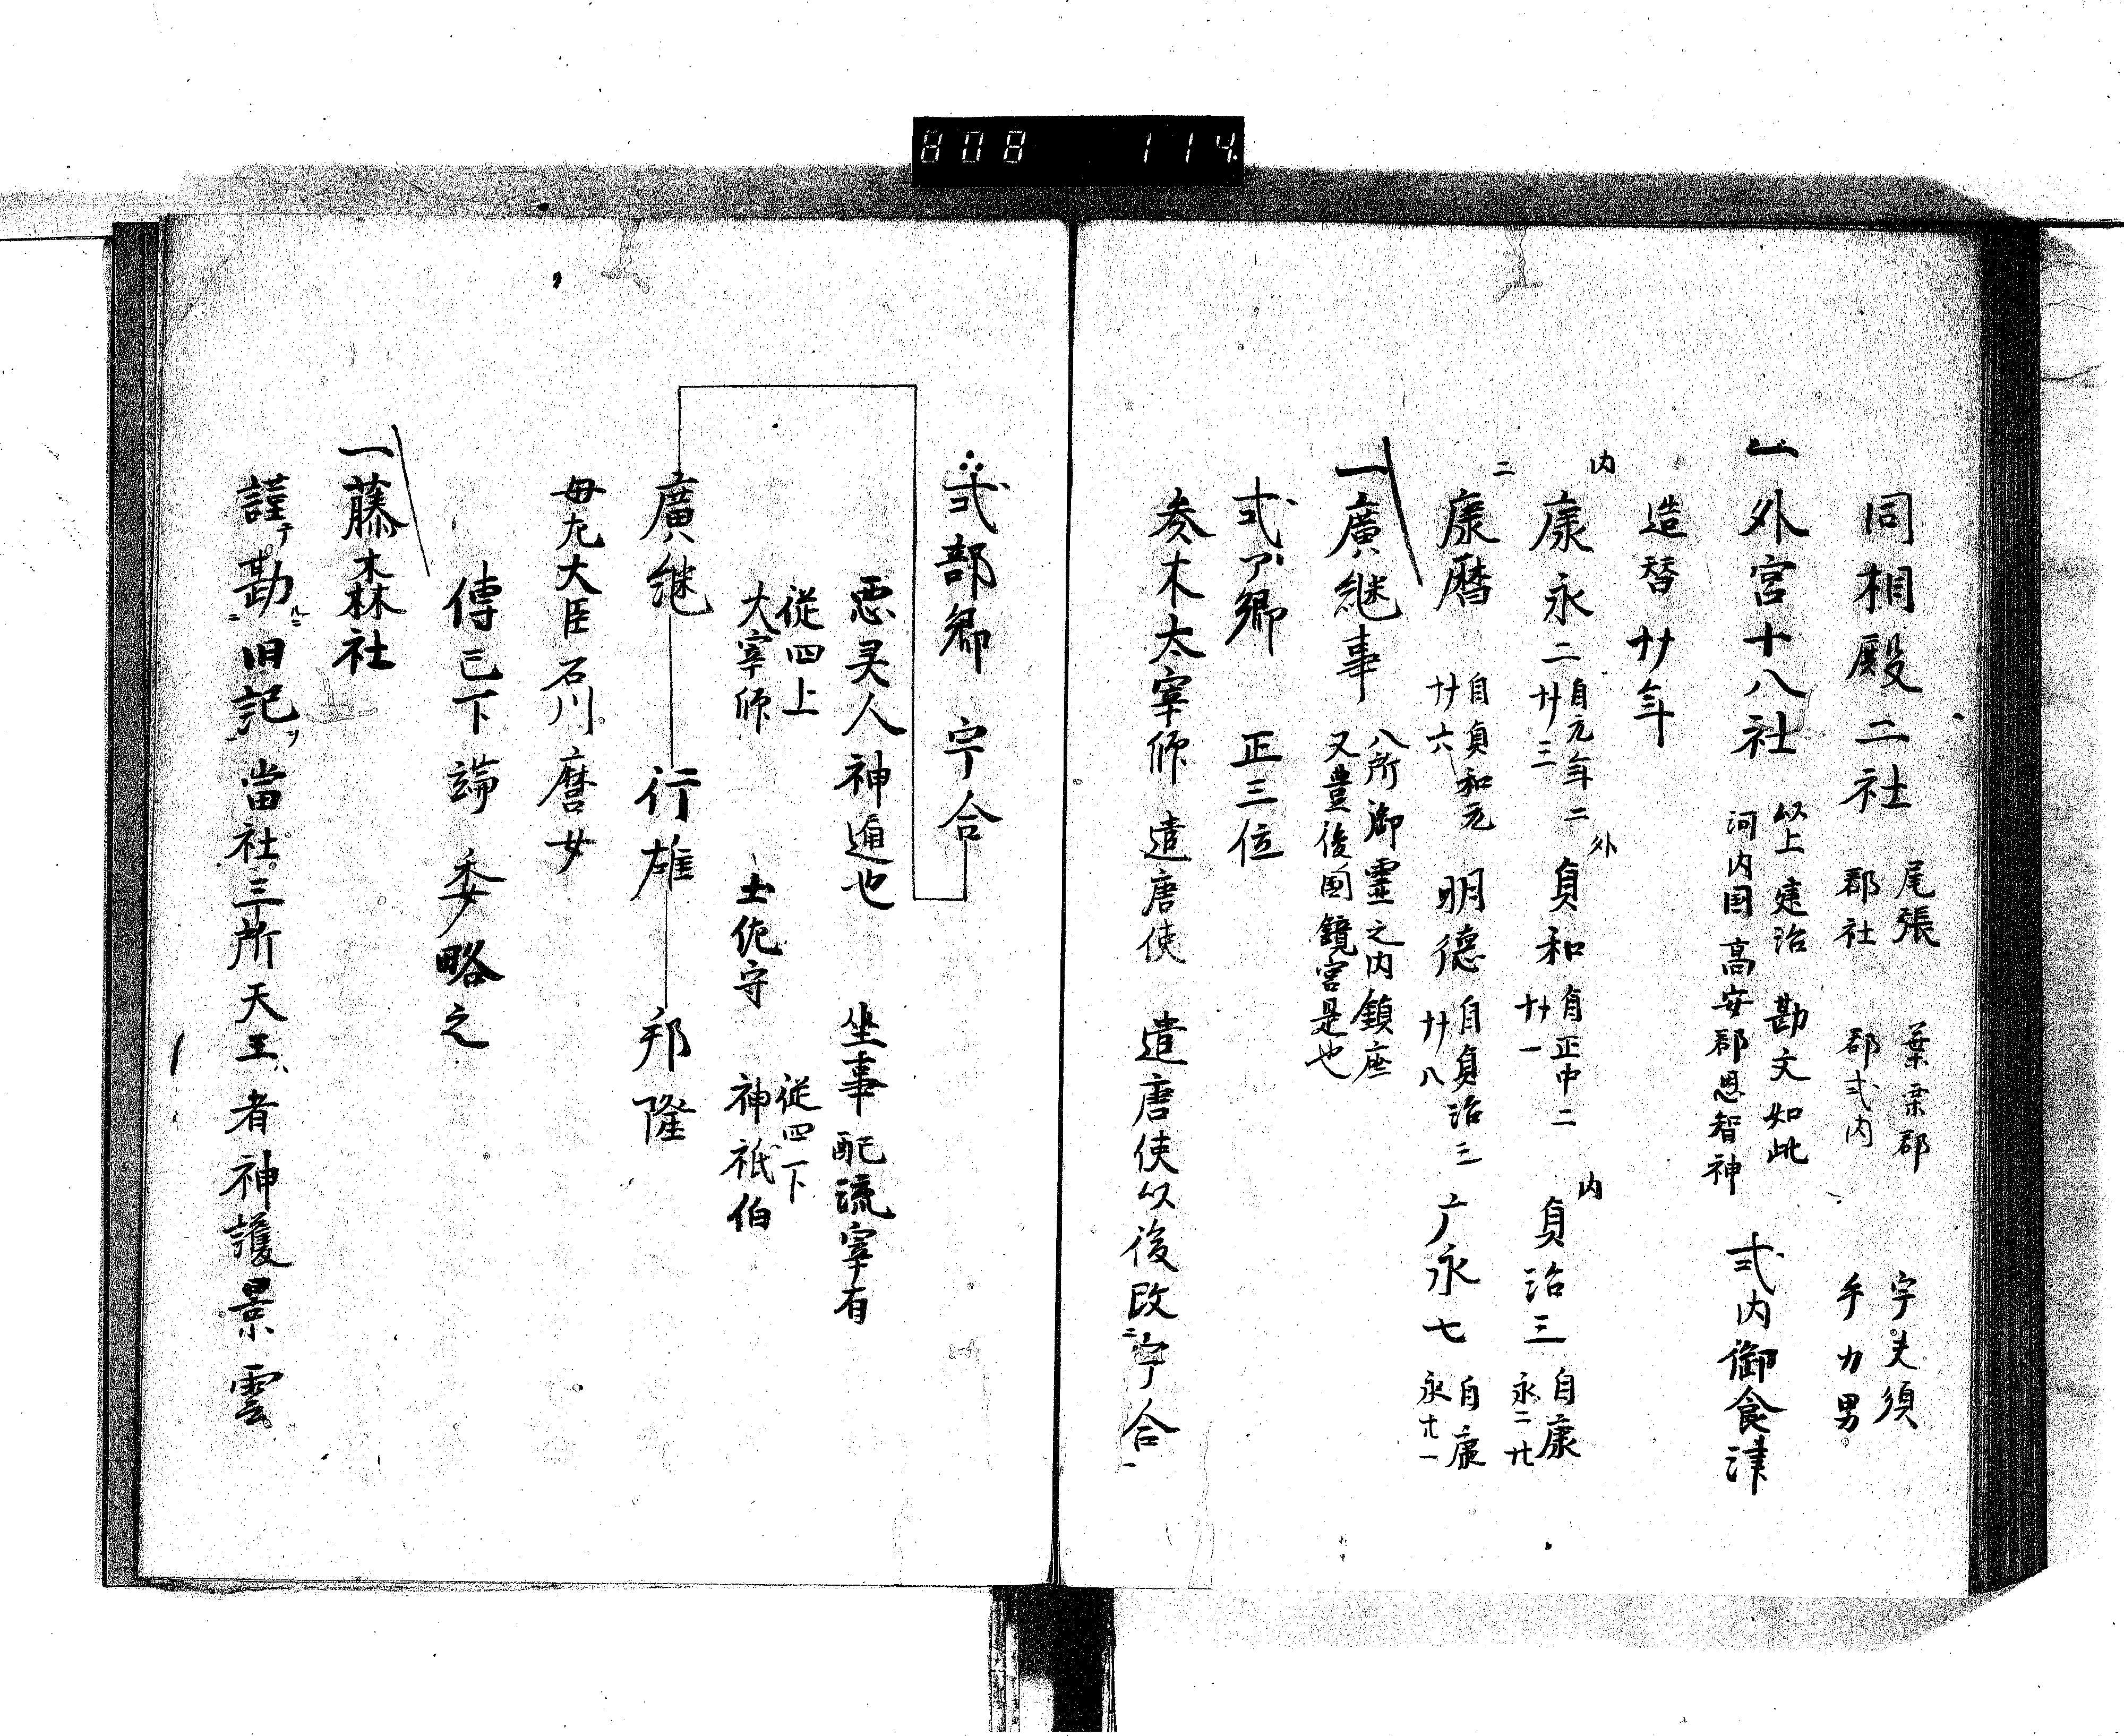 808 114
同相殿二社 尾張 葉栗郡 宇夫須
郡社 郡式内 手力男
一外宮十八社 以上建治 勘文如此
河内国高安郡恩智神 式内御食津
造替廿年
内 外 内
康永二 自元年二 廿三 貞和 自正中二 廿一 貞治三 自康永二 廿
二
康暦 自貞和元 廿六 明徳 自貞治三 廿八 广永七 自康永 廿一
一廣継事 八所御霊之内鎮座
又豊後国鏡宮是也
式ア卿 正三位
参木太宰師 遣唐使 遣唐使以後改ニ宇合
式部卿 宇合
悪灵人神通也 坐事配流宰有
従四上 従四下
大宰師 土佐守 神祇伯
廣継 行雄 邦隆
母九大臣石川麿女
傳已下 委略之
一藤森社
謹テ勘ルニ旧記ヲ当社三所天王ハ者神護景雲